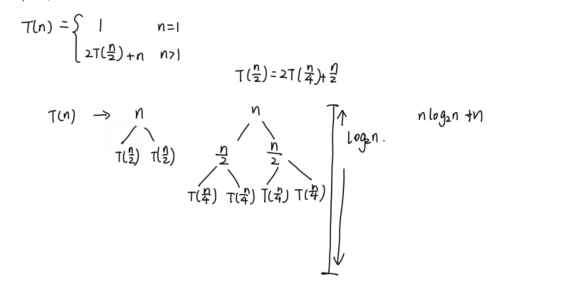 T(n) = { 1 n=1
2T(n/2)+n n>1
T(n/2)=2T(n/4)+n/2
T(n) → n
T(n/2) T(n/2)
n
n/2 n/2
T(n/4) T(n/4) T(n/4) T(n/4)
log₂n.
nlog₂n+n